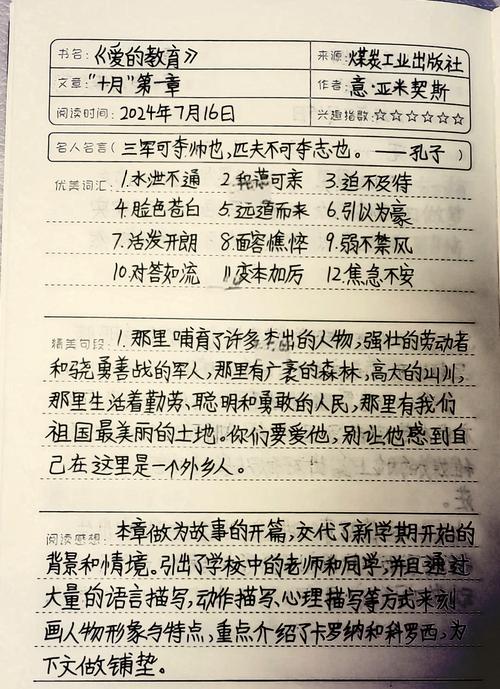 书名:《爱的教育》 来源: 煤炭工业出版社
文章: "十月"第一章 作者: 意·亚米契斯
阅读时间: 2024年7月16日 兴趣指数: ☆☆☆☆☆☆
名人名言( 三军可夺帅也,匹夫不可夺志也。 ——孔子 )
优美词汇: 1.水泄不通 2.和蔼可亲 3.迫不及待
4.脸色苍白 5.远道而来 6.引以为豪
7.活泼开朗 8.面容憔悴 9.弱不禁风
10.对答如流 11.变本加厉 12.焦急不安
精美句段: 1.那里哺育了许多杰出的人物,强壮的劳动者
和骁勇善战的军人,那里有广袤的森林,高大的山川,
那里生活着勤劳、聪明和勇敢的人民,那里有我们
祖国最美丽的土地。你们要爱他,别让他感到自
己在这里是一个外乡人。
阅读感想: 本章做为故事的开篇,交代了新学期开始的
背景和情境。引出了学校中的老师和同学,并且通过
大量的语言描写,动作描写、心理描写等方式来刻
画人物形象与特点,重点介绍了卡罗纳和科罗西,为
下文做铺垫。